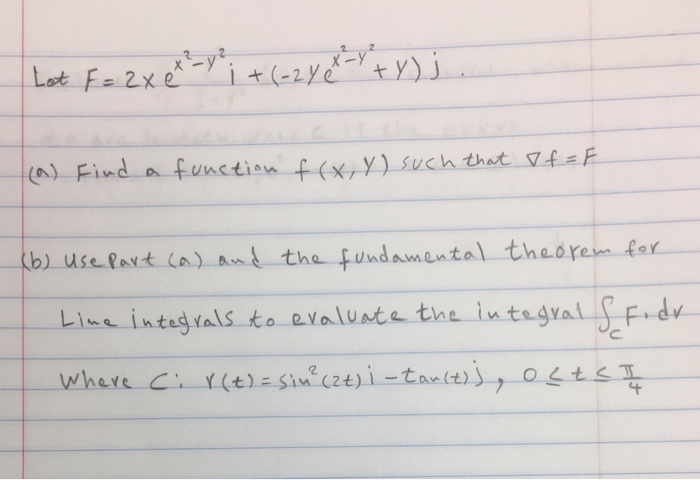 Let F = 2x e^{x²-y²} i + (-2y e^{x²-y²} + y) j .
(a) Find a function f(x, y) such that ∇f = F
(b) use part (a) and the fundamental theorem for
Line integrals to evaluate the integral ∫_C F. dr
Where C: r(t) = sin²(2t) i - tan(t) j , 0 ≤ t ≤ π/4